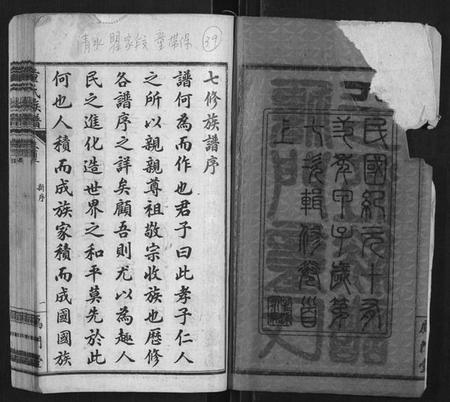 民國紀元十有
三年甲子歲第
七次輯修卷首
上
清水 瞿家段 童帶保
39
七修族譜序
譜何為而作也君子曰此孝子仁人
之所以親親尊祖敬宗收族也歷修
各譜序之詳矣顧吾則尤以為趣人
民之進化造世界之和平莫先於此
何也人積而成族家積而成國國族
氏族譜
新序